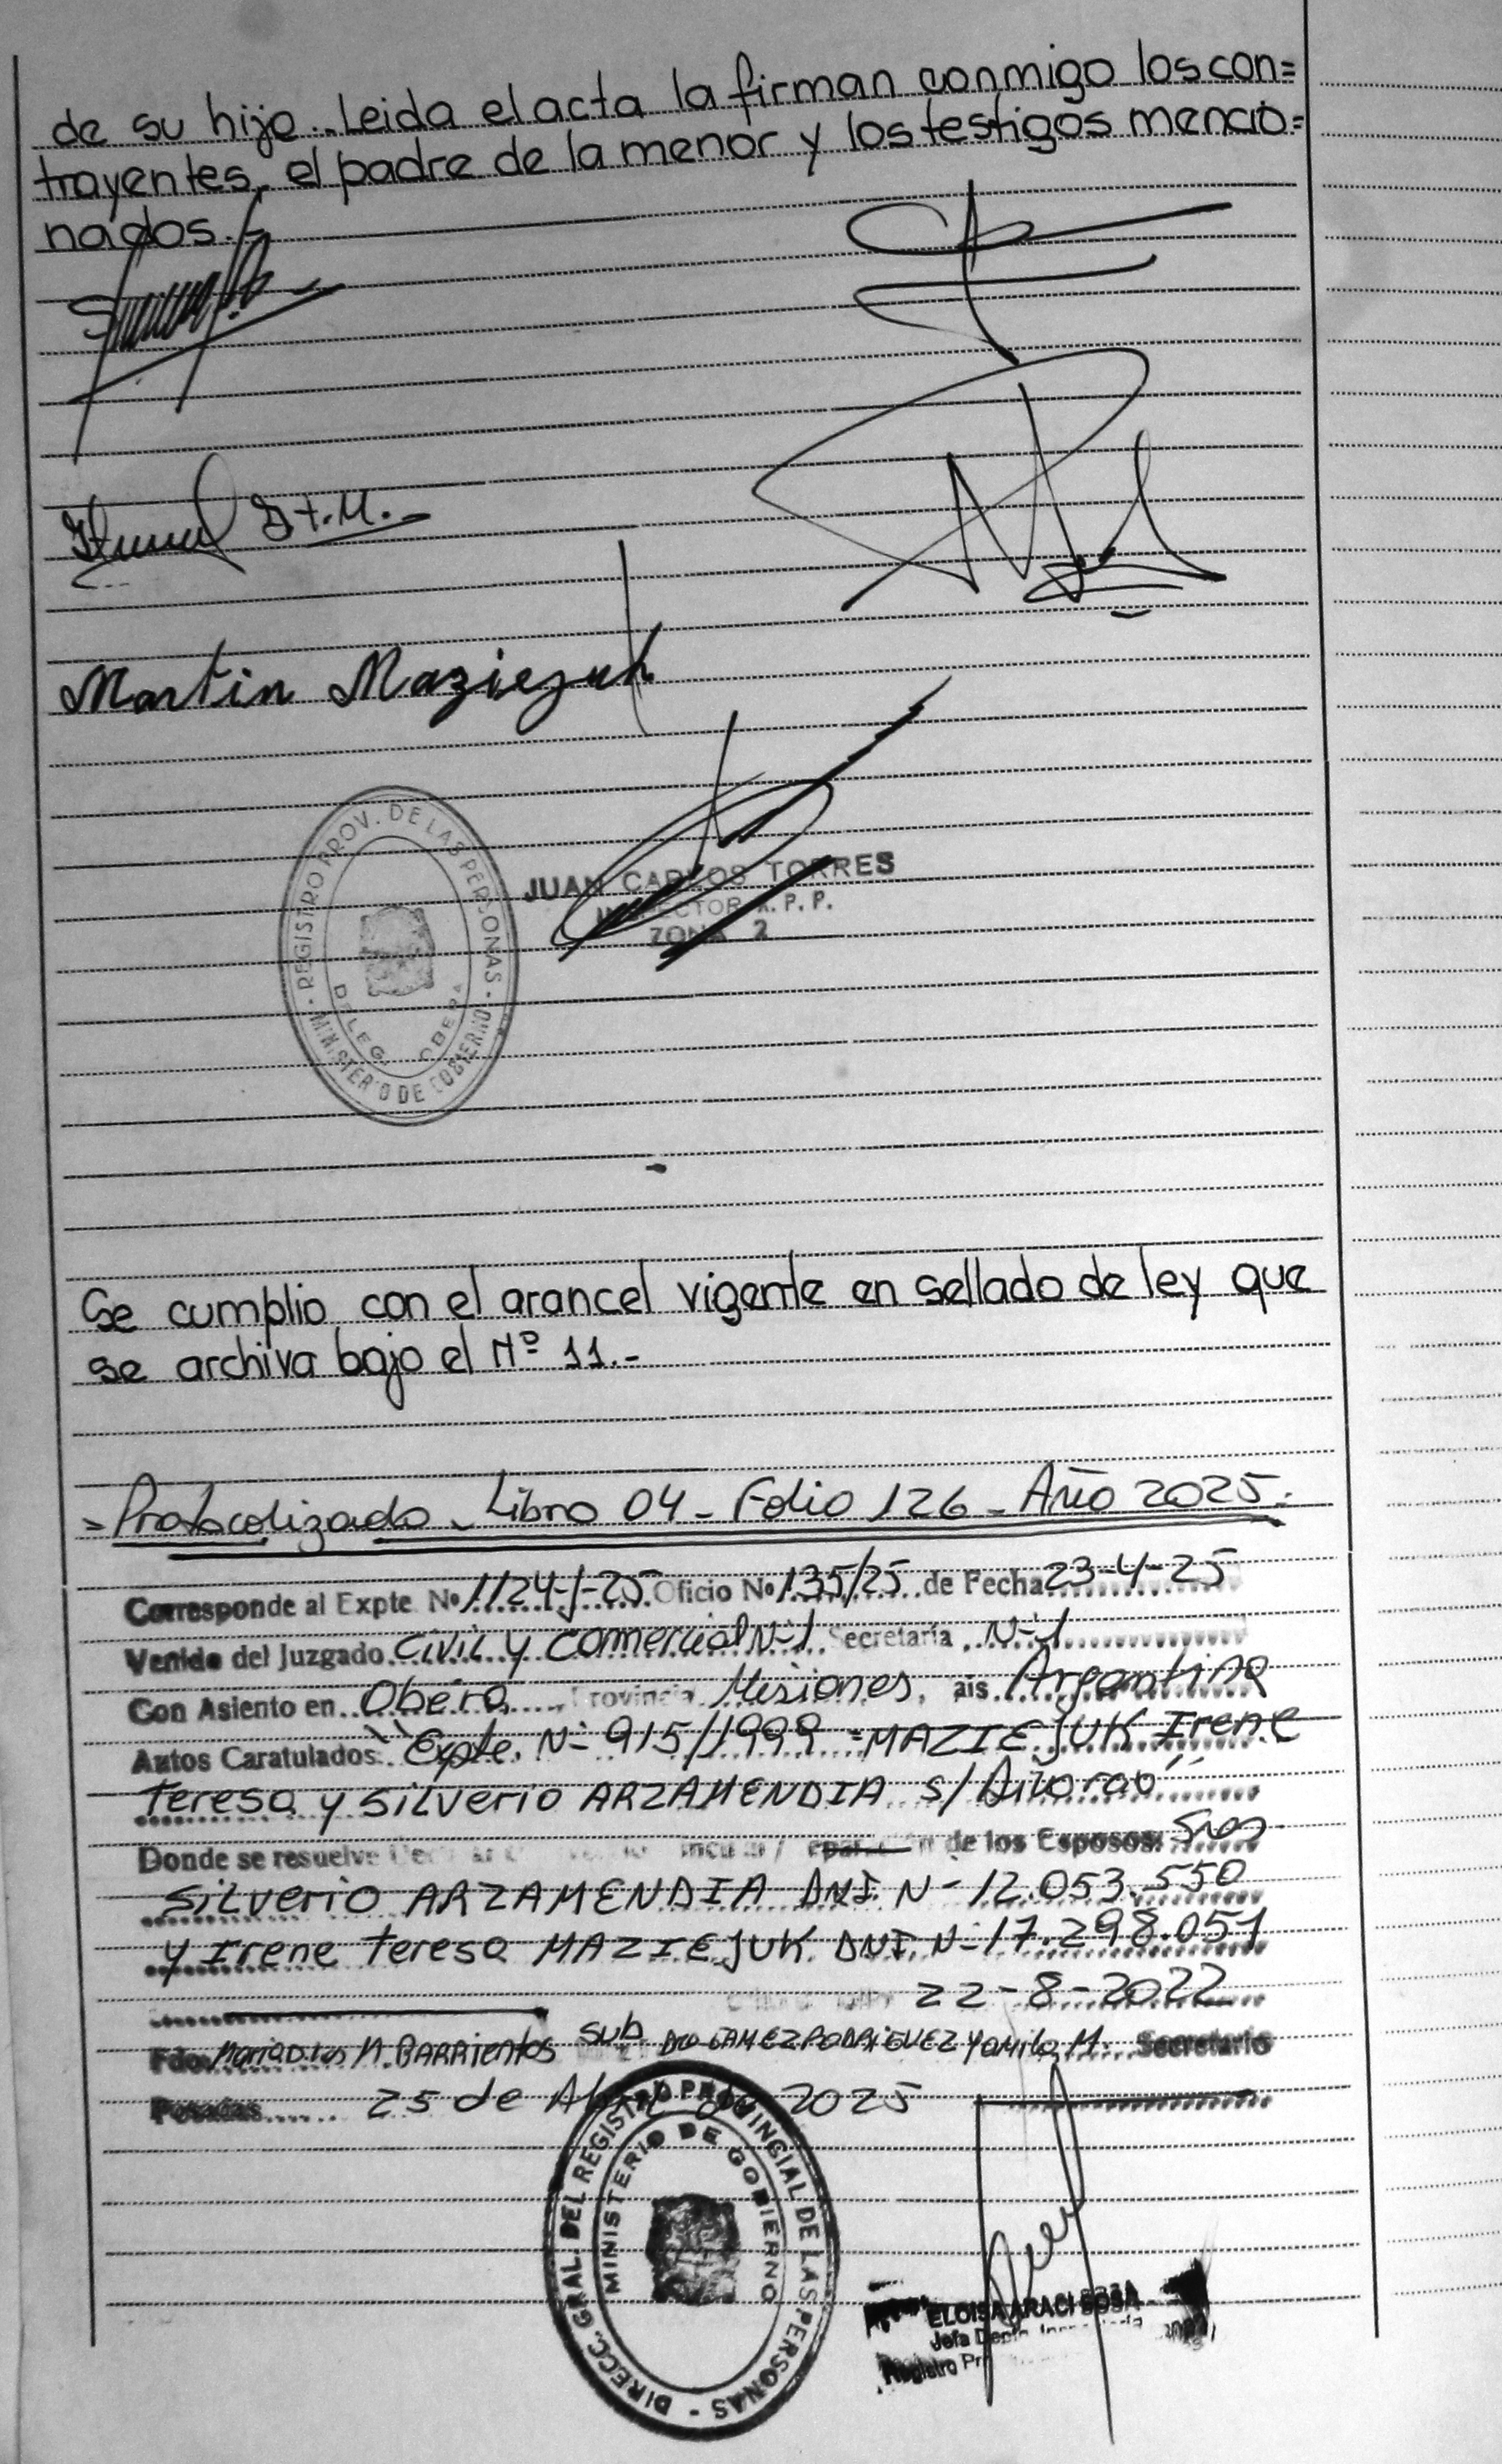 de su hijo.. Leida el acta la firman conmigo los con=
trayentes, el padre de la menor y los testigos mencio=
nados.-
Martin Maziejuk
REGISTRO PROV. DE LAS PERSONAS - MINISTERIO DE GOBIERNO -
DELEG. OBERA
JUAN CARLOS TORRES
INSPECTOR R. P. P.
ZONA 2
Se cumplio con el arancel vigente en sellado de ley que
se archiva bajo el Nº 11.-
Protocolizado - Libro 04 - Folio 126 - Año 2025.
Corresponde al Expte Nº 1124-J-25 Oficio Nº 135/25 de Fecha 23-4-25
Venido del Juzgado Civil y Comercial Nº 1 Secretaría Nº 1
Con Asiento en Obera Provincia Misiones, ais Argentina
Autos Caratulados: "Expte. Nº 915/1999 - MAZIEJUK Irene
Teresa y Silverio ARZAMENDIA s/
Donde se resuelve de los Esposos:
Silverio ARZAMENDIA DNI. Nº 12.053.550
y Irene Teresa MAZIEJUK DNI. Nº 17.298.051
22-8-2022
Fdo. BARRIENTOS Sub GAMEZ RODRIGUEZ Yamila M. Secretario
Posadas 25 de Abril de 2025
DIRECC. GRAL. DEL REGISTRO PROVINCIAL DE LAS PERSONAS -
MINISTERIO DE GOBIERNO
ELOISA ARACI SOSA
Jefa Depto.
Registro